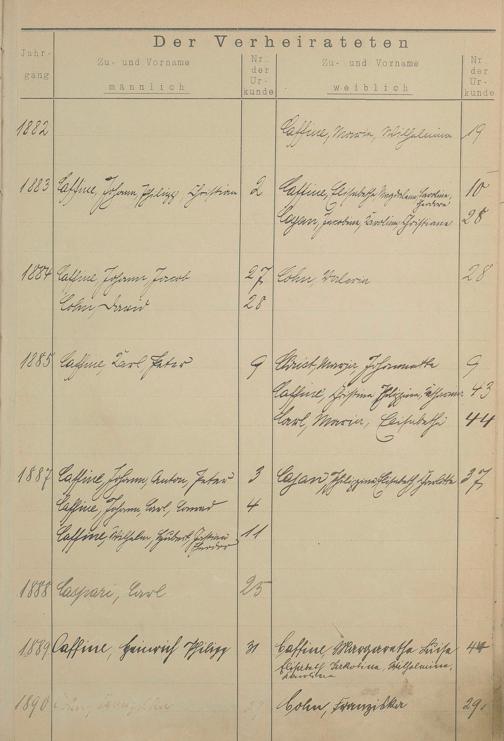 Der Verheirateten
Jahr-
gang
Zu- und Vorname
männlich
Nr.
der
Ur-
kunde
Zu- und Vorname
weiblich
Nr.
der
Ur-
kunde
1882 Caffine, Maria, Wilhelmina 19
1883 Caffine, Johann, Philipp, Christian 2 Caffine, Elisabetha Magdalena, Carolina, 10
Cajan, Jacobina, Karolina, Christiane 28
1884 Caffine Johann, Jacob 27 Cohn, 28
Cohn, David 28
1885 Caffine, Karl, Peter 9 Christ, Maria, Johannetta 9
Caffine, Christina Philippina, 43
Carl, Maria, Elisabetha 44
1887 Caffine, Johann, Anton, Peter 3 Cajan, Philippina Elisabeth Charlotte 37
Caffine, Johann, Carl, Conrad 4
Caffine, Wilhelm, Hubert, 11
1888 Caspari, Carl 25
1889 Caffine, Heinrich Philipp 31 Caffine, Margaretha Luise 44
Elisabeth Wilhelmine,
1890 Cohn, Franziska 29